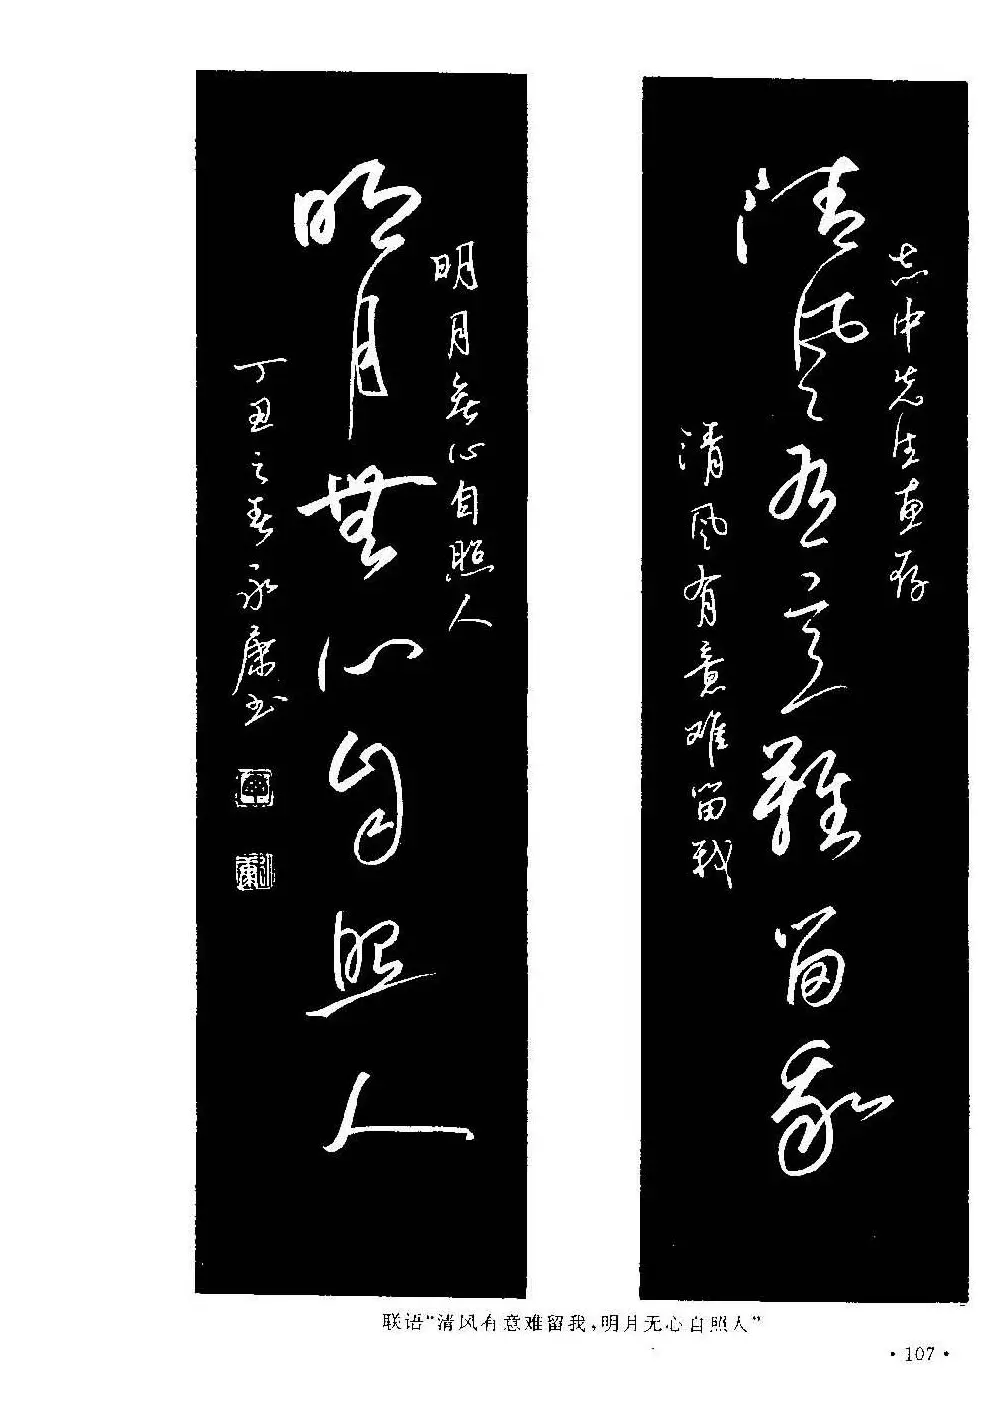 志中先生惠存
清風有意難留我
清风有意难留我
明月無心自照人
明月無心自照人
丁丑之春永康书
联语“清风有意难留我，明月无心自照人”
·107·